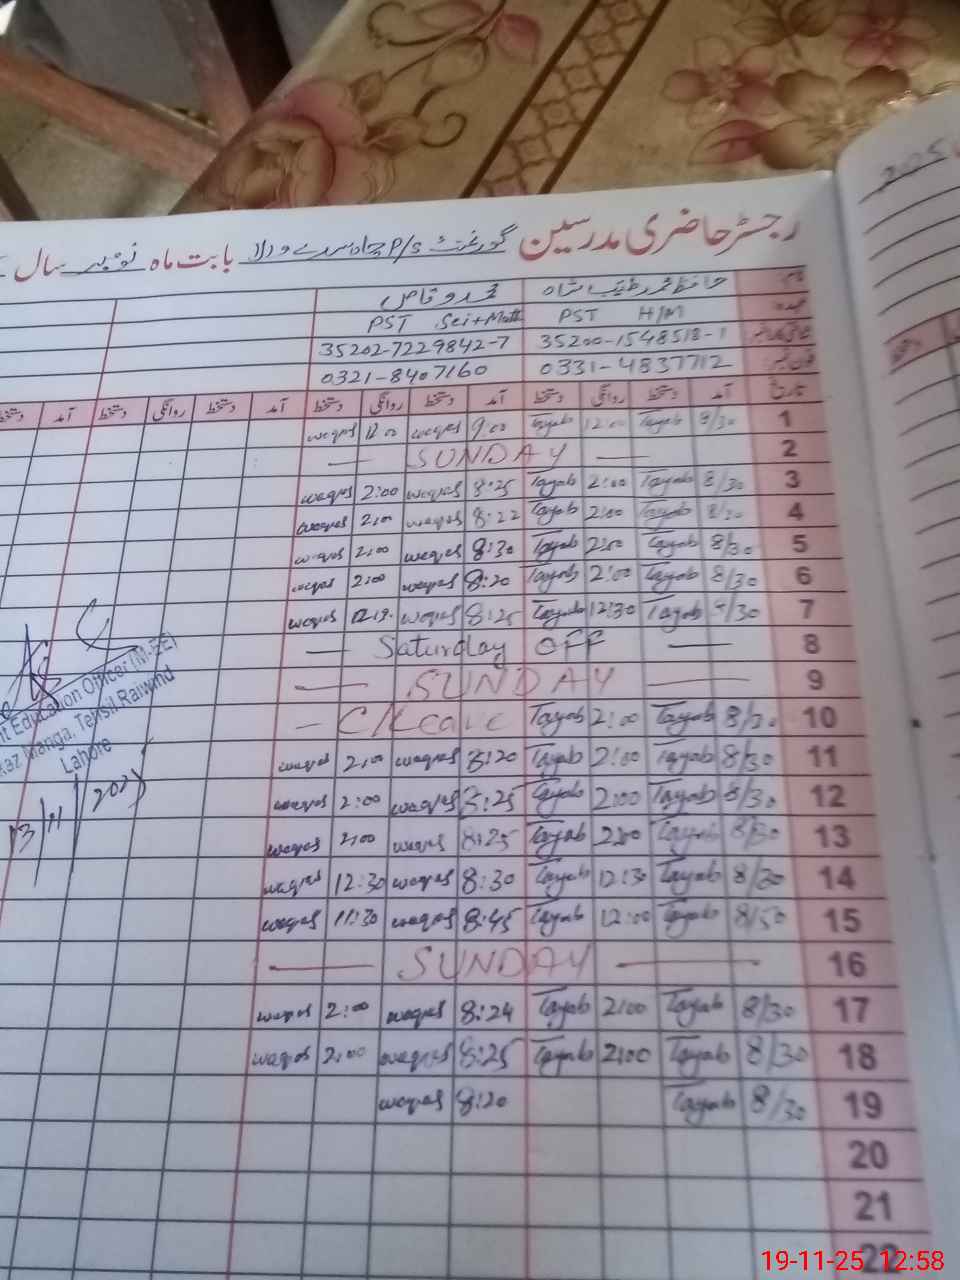 2025
رجسٹر حاضری مدرسین گورنمنٹ P/S چاہ سردے والا بابت ماہ نومبر سال
نام حافظ محمد طیب شاہ محمد وقاص
عہدہ PST H/M PST Sci+Math
شناختی کارڈ نمبر 35200-1548518-1 35202-7229842-7
فون نمبر 0331-4837712 0321-8407160
تاریخ آمد دستخط روانگی دستخط آمد دستخط روانگی دستخط آمد دستخط روانگی دستخط آمد دستخط
1 8/30 Tayab 12:00 Tayab 9:00 waqas 12:00 waqas
2 — SUNDAY —
3 8/30 Tayab 2:00 Tayab 8:25 waqas 2:00 waqas
4 8/30 Tayab 2:00 Tayab 8:22 waqas 2:00 waqas
5 8/30 Tayab 2:00 Tayab 8:30 waqas 2:00 waqas
6 8/30 Tayab 2:00 Tayab 8:20 waqas 2:00 waqas
7 8/30 Tayab 12:30 Tayab 8:25 waqas waqas
8 — Saturday OFF —
9 — SUNDAY —
10 8/30 Tayab 2:00 Tayab — C/Leave
11 8/30 Tayab 2:00 Tayab 8:20 waqas 2:00 waqas
12 8/30 Tayab 2:00 Tayab 8:25 waqas 2:00 waqas
13 8/30 Tayab 2:00 Tayab 8:25 waqas 2:00 waqas
14 8/30 Tayab 12:30 Tayab 8:30 waqas 12:30 waqas
15 8/50 Tayab 12:00 Tayab 8:45 waqas 11:30 waqas
16 — SUNDAY —
17 8/30 Tayab 2:00 Tayab 8:24 waqas 2:00 waqas
18 8/30 Tayab 2:00 Tayab 8:25 waqas 2:00 waqas
19 8/30 Tayab 8:20 waqas
20
21
22
nt Education Officer (M-EE)
kaz Manga, Tehsil Raiwind
Lahore
13/11/2025
19-11-25 12:58